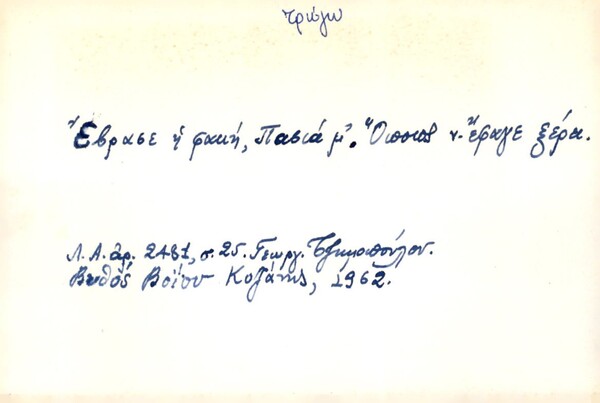 τρώγω
Ἔβρασε ἡ φακή, Πασιά μ'. Ὅποιος τ' ἔφαγε ξέρει.
Λ. Α. ἀρ. 2481, σ. 25. Γεωργ.
Βυθὸς Βοΐου Κοζάνης, 1962.